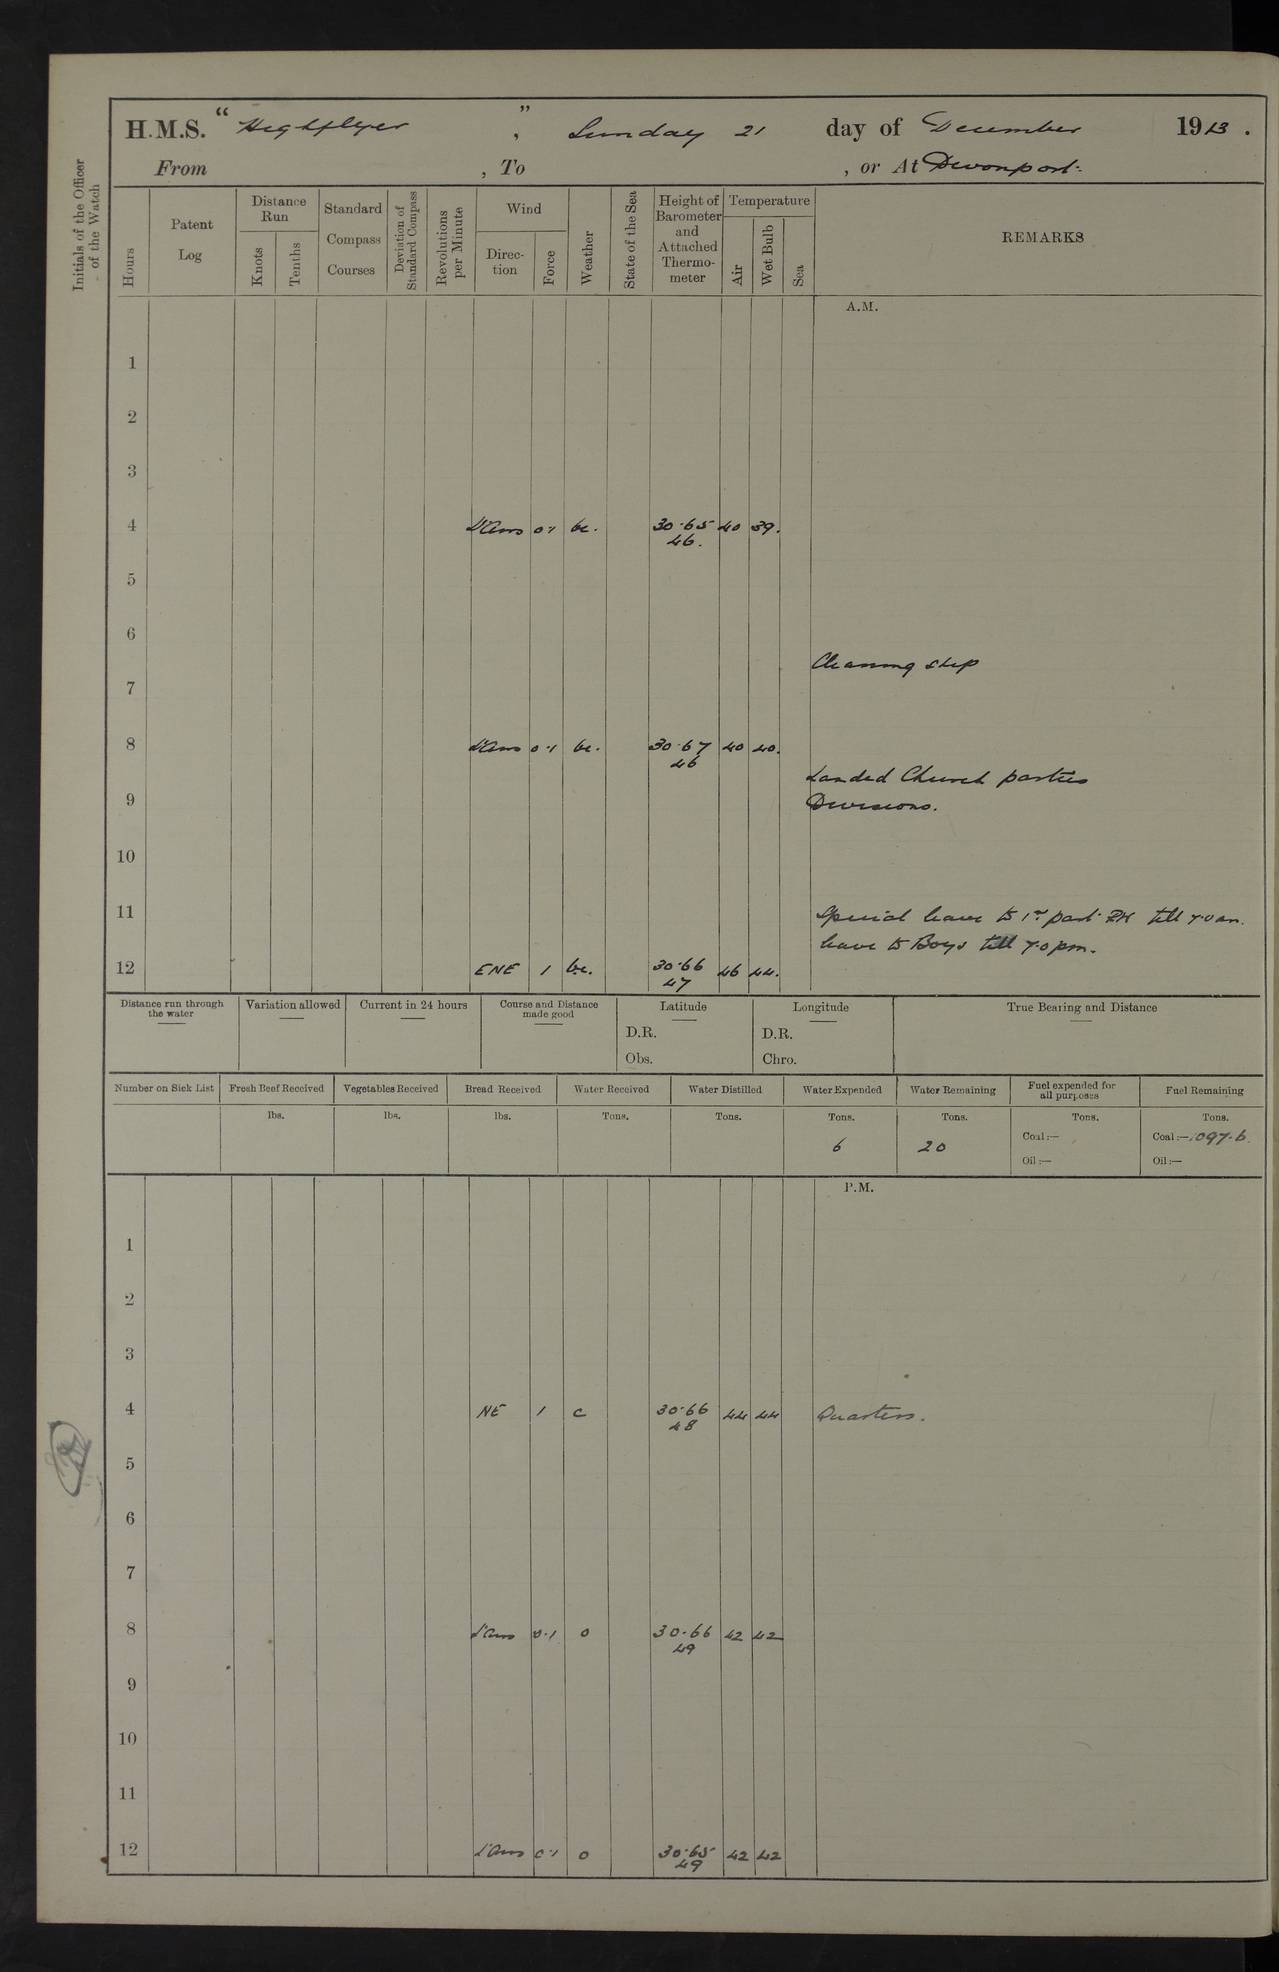 H.M.S. “ Highflyer ” , Sunday 21 day of December 1913 .
From , To , or At Devonport.
Initials of the Officer of the Watch
Hours
Patent Log
Distance Run
Knots
Tenths
Standard Compass Courses
Deviation of Standard Compass
Revolutions per Minute
Wind
Direction
Force
Weather
State of the Sea
Height of Barometer and Attached Thermometer
Temperature
Air
Wet Bulb
Sea
REMARKS
A.M.
1
2
3
4 L'Airs 0·1 bc. 30·65 40 39.
46.
5
6
Cleaning ship
7
8 L'Airs 0·1 bc. 30·67 40 40.
46
Landed Church parties
9 Divisions.
10
11 Special leave to 1st part till 7·0 am.
leave to Boys till 7·0 pm.
12 ENE 1 bc. 30·66 46 44.
47
Distance run through the water
Variation allowed
Current in 24 hours
Course and Distance made good
Latitude
D.R.
Obs.
Longitude
D.R.
Chro.
True Bearing and Distance
Number on Sick List
Fresh Beef Received
Vegetables Received
Bread Received
Water Received
Water Distilled
Water Expended
Water Remaining
Fuel expended for all purposes
Fuel Remaining
lbs. lbs. lbs. Tons. Tons. Tons. Tons. Tons. Tons.
6 20 Coal:— Coal:—1097·6
Oil:— Oil:—
P.M.
1
2
3
4 NE 1 c 30·66 44 44 Quarters.
48
5
6
7
8 L'Airs 0·1 o 30·66 42 42
49
9
10
11
12 L'Airs 0·1 o 30·65 42 42
49